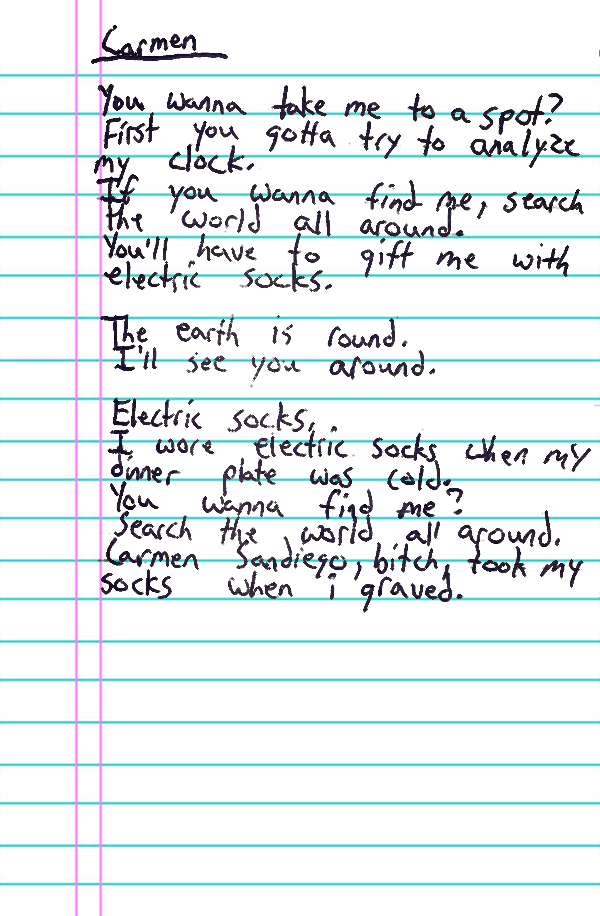 Carmen
You wanna take me to a spot?
First you gotta try to analyze
my clock.
If you wanna find me, search
the world all around.
You'll have to gift me with
electric socks.
The earth is round.
I'll see you around.
Electric socks..
I wore electric socks when my
dinner plate was cold.
You wanna find me?
Search the world all around.
Carmen Sandiego, bitch, took my
socks when i graved.